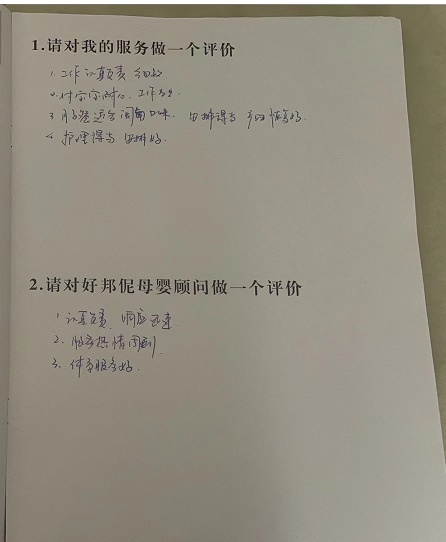 1.请对我的服务做一个评价
1. 工作认真负责 细致
2. 对宝宝耐心. 工作
3 月餐适合 口味. 安排得当
4. 护理得当 安排好.
2.请对好邦伲母婴顾问做一个评价
1 认真负责、响应迅速
2. 服务热情周到.
3. 体 服务好.